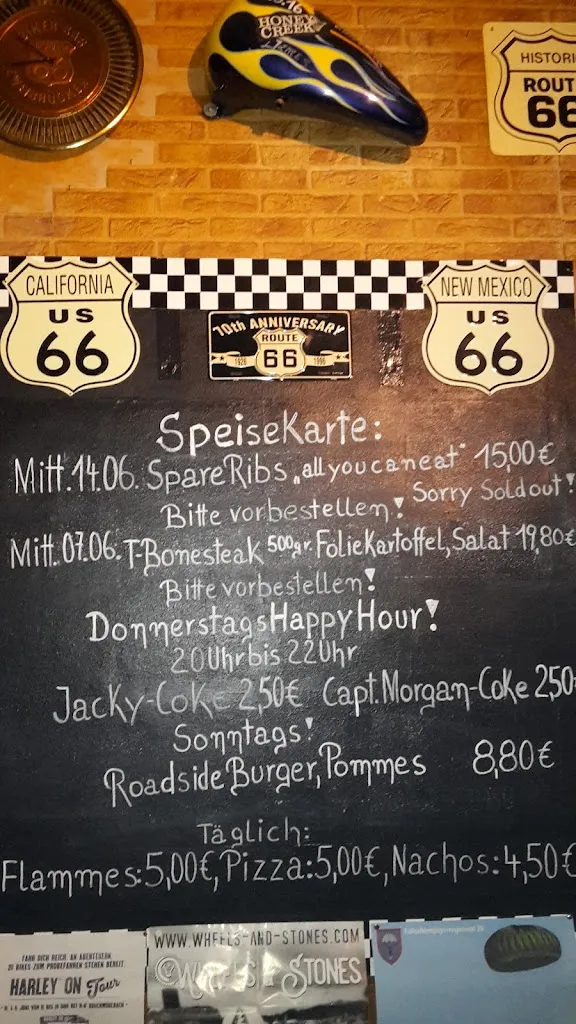 HONEY
CREEK
HISTORI
ROUT
66
CALIFORNIA
US
66
70th ANNIVERSARY
ROUTE
66
1926
1996
NEW MEXICO
US
66
SpeiseKarte:
Mitt.14.06. SpareRibs „all you can eat" 15,00€
Bitte vorbestellen! Sorry Soldout!
Mitt.07.06. T-Bonesteak 500gr. FolieKartoffel, Salat 19,80€
Bitte vorbestellen!
Donnerstags Happy Hour!
20Uhr bis 22Uhr
Jacky-Coke 2,50€ Capt. Morgan-Coke 2,50
Sonntags!
Roadside Burger, Pommes 8,80€
Täglich:
Flammes: 5,00€, Pizza: 5,00€, Nachos: 4,50€
FAHR DICH REICH AN ABENTEUERN.
ZU BIKES ZUM PROBEFAHREN STEHEN BEREIT.
HARLEY ON Tour
WWW.WHEELS-AND-STONES.COM
WHEELS & STONES